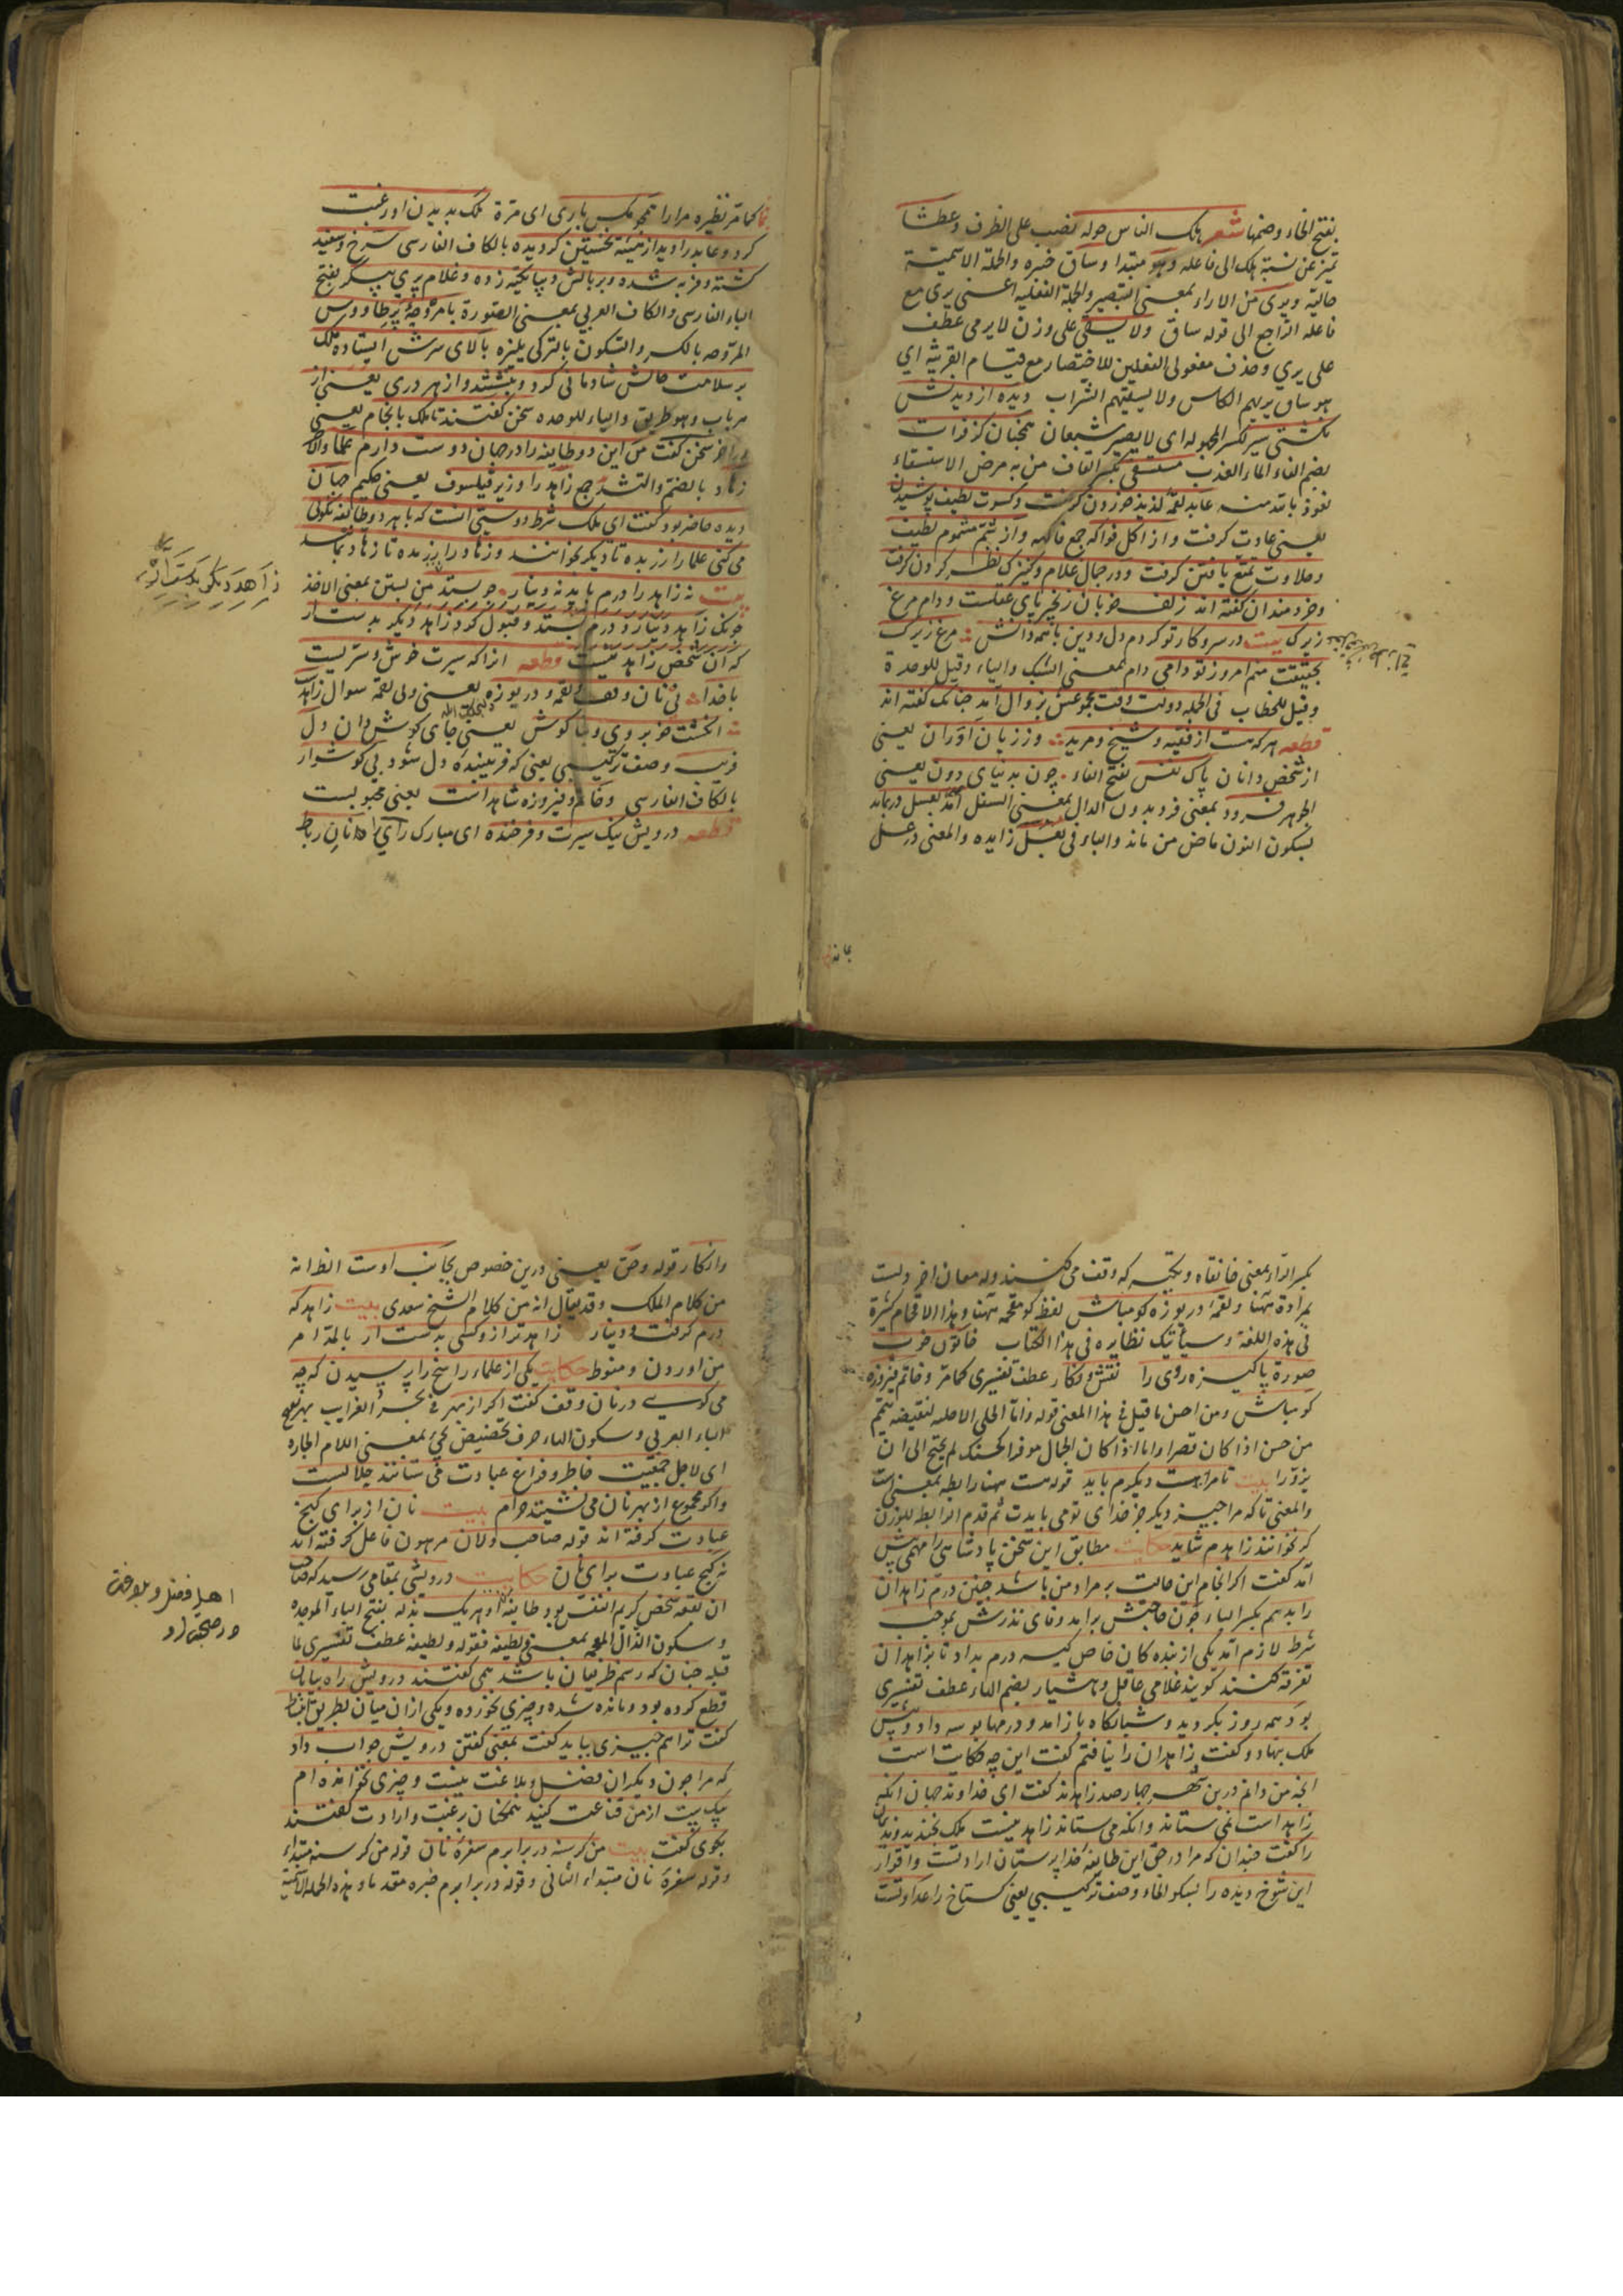 بفتح الخاء وضمها شعر هلك الناس حوله نصب على الظرف وعطشا
تميز عن نسبة هلك الى فاعله وهو مبتدا وساق خبره والجملة الاسمية
حالية ويرى من الاراء بمعنى التبصير والجملة الفعلية اعنى يرى مع
فاعله الراجع الى قوله ساق ولا يسقى على وزن لا يرمى عطف
على يرى وحذف مفعولى الفعلين للاختصار مع قيام القرينة اى
هو ساق يريهم الكاس ولا يسقيهم الشراب ديده از ديدنش
نكشتى سير بكسر المجهوله اى لا يصير شبعان همچنان كز فرات
بضم الفاء الماء العذب مستسقى بكسر القاف من به مرض الاستسقاء
نعوذ بالله منه عابد لقمه لذيذ خوردن كرفت وكسوت لطيف پوشيدن
يعنى عادت كرفت واز اكل فواكه جمع فاكهه واز شم مشموم لطيف
وحلاوت تمتع يافتن كرفت ودر جمال غلام وكنيزك نظر كردن كرفت
وخردمندان كفته اند زلف خوبان زنجير پاى عقلست ودام مرغ
زيرك بيت در سر وكار تو كردم دل ودين با همه دانش مرغ زيرك
بحقيقت منم امروز تو دامى دام بمعنى الشبك والياء وقيل للوحدة
وقيل للخطاب فى الجمله دولت وقت مجموعش بزوال آمد چنانك كفته اند
قطعه هر كه هست از فقيه وشيخ ومريد وز زبان آوران يعنى
از شخص دانان پاك نفس بفتح الفاء چون بدنياى دون يعنى
الجوهر فرود بمعنى فرو بدون الدال بمعنى السفل آمد بعسل در بماند
بسكون النون ماض من ماند والباء فى بعسل زايده والمعنى در عسل
بماند
كما مر نظيره مرارا همچو مكس بارى اى مرة ملك بديدن او رغبت
كرد وعابد را ديد از هيئه نخستين كرديده بالكاف الفارسى سرخ وسفيد
كشته وفربه شده وبر بالش ديبا تكيه زده وغلام پرى پيكر بفتح
الباء الفارسى والكاف العربى بمعنى الصورة با مروحه پر طاووس
المروحه بالكسر والسكون بالتركى يلپزه بالاى سرش ايستاده ملك
بر سلامت حالش شادمانى كرد وبنشستند واز هر درى يعنى از
هر باب وهو طريق والياء للوحده سخن كفتند تا ملك بانجام يعنى
در اخر سخن كفت من اين دو طايفه را در جهان دوست دارم علما و
زهاد بالضم والتشديد جمع زاهد را وزير فيلسوف يعنى حكيم جهان
ديده حاضر بود كفت اى ملك شرط دوستى انست كه با هر دو طائفه نكوئى
مى كنى علما را زر بده تا ديكر بخوانند وزهاد را زر مده تا زهاد بمانند
بيت نه زاهد را درم بايد نه دينار چو بستد من بستن بمعنى الاخذ
چونك زاهد دينار ودرم بستد وقبول كرد زاهد ديكر بدست ار
كه آن شخص زاهد نيست قطعه انرا كه سيرت خوش وسريست
با خدا بى نان وقف ولقمه دريوزه يعنى ولى لقمه سوال زاهد
انكشت خوبروى وبنا كوش يعنى جاى كوش وان دل
فريب وصف تركيبى يعنى كه فريبنده دل شود بى كوشوار
بالكاف الفارسى وخاتم وفيروزه شاهد است يعنى محبوبست
قطعه درويش نيك سيرت وفرخنده اى مبارك راى را نان رباط
زاهد ديكر بدست آر
بكسر الراء بمعنى خانقاه وتكيه كه وقف مى كنند وله معان اخر وليست
بمرادة ههنا ولقمه دريوزه كو مباش لفظ كو مقحمه ههنا وهذا الاقحام كثيرة
فى هذه اللغة وسياتيك نظايره فى هذا الكتاب خاتون خوب
صورة پاكيزه روى را نقش ونكار عطف تفسيرى كما مر وخاتم فيروزه
كو مباش ومن احسن ما قيل فى هذا المعنى قوله وانا الحلى الا حلية لنقيصة يتمم
من حسن اذا كان قصرا واما اذا كان الجمال موفرا كحسنك لم يحتج الى ان
يزورا بيت تا مرا هست وديكرم بايد قوله هست ههنا رابطه بمعنى است
والمعنى تا كه مرا چيز ديكر جز خداى تو مى بايدت ثم قدم الرابطه للوزن
كر نخوانند زاهدم شايد حكايت مطابق اين سخن پادشاهى را مهمى پيش
آمد كفت اكر انجام اين حالت بر مراد من باشد چنين درم زاهدان
را بدهم بكسر الباء چون حاجتش برامد وفاى نذرش بموجب
شرط لازم آمد يكى از بنده كان خاص كيسه درم بداد تا بزاهدان
تفرقه كنند كويند غلامى عاقل وهشيار بضم الهاء عطف تفسيرى
بود همه روز بكرديد وشبانكاه بازامد ودرمها بوسه داد وپيش
ملك نهاد وكفت زاهدان را نيافتم كفت اين چه حكايت است
انچه من دانم درين شهر چهار صد زاهدند كفت اى خداوند جهان انكه
زاهد است نمى ستاند وانكه مى ستاند زاهد نيست ملك بخنديد ونديمان
را كفت چندان كه مرا در حق اين طايفه خدا پرستان ارادتست واقرار
اين شوخ ديده را بسكون الخاء وصف تركيبى يعنى كستاخ را عداوتست
وانكار قوله وحق يعنى درين خصوص بجانب اوست الظ انه
من كلام الملك وقد يقال انه من كلام الشيخ سعدى بيت زاهد كه
درم كرفت ودينار زاهدتر ازو كسى بدست ار بالمد امر
من اوردن ومنوط حكايت يكى از علماء راسخ را پرسيدن كه چه
مى كويى در نان وقف كفت اكر از بهر فى بحر الغرايب بهر بفتح
الباء العربى وسكون الهاء حرف تخصيص يجىء بمعنى اللام الجاره
اى لاجل جمعيت خاطر وفراغ عبادت مى ستانند حلالست
واكر مجموع از بهر نان مى نشينند حرام بيت نان از براى كنج
عبادت كرفته اند قوله صاحب دلان مرهون فاعل كرفته اند
نه كنج عبادت براى نان حكايت درويشى بمقامى رسيد كه صاحب
ان بقعه شخص كريم النفس بود طايفه او هريك بذله بفتح الباء الموحده
وسكون الذال المعجمه بمعنى لطيفه فقوله ولطيفه عطف تفسيرى لما
قبله چنان كه رسم ظريفان باشد همى كفتند درويش راه بيابان
قطع كرده بود ومانده شده وچيزى نخورده ويكى از ان ميان بطريق انبساط
كفت ترا هم چيزى ببايد كفت بمعنى كفتن درويش جواب داد
كه مرا چون ديكران فضل وبلاغت نيست وچيزى نخوانده ام
بيك بيت از من قناعت كنيد همكنان برغبت وارادت كفتند
بكوى كفت بيت من كرسنه در برابرم سفره نان قوله من كرسنه مبتداء
وقوله سفرۀ نان مبتداء الثانى وقوله در برابرم خبره مقدما وهذه الجملة الاسمية
اهل فضل وبلاغت